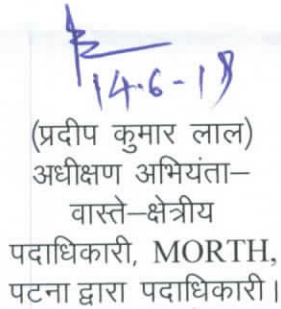 14.6-18
(प्रदीप कुमार लाल)
अधीक्षण अभियंता–
वास्ते–क्षेत्रीय
पदाधिकारी, MORTH,
पटना द्वारा पदाधिकारी।